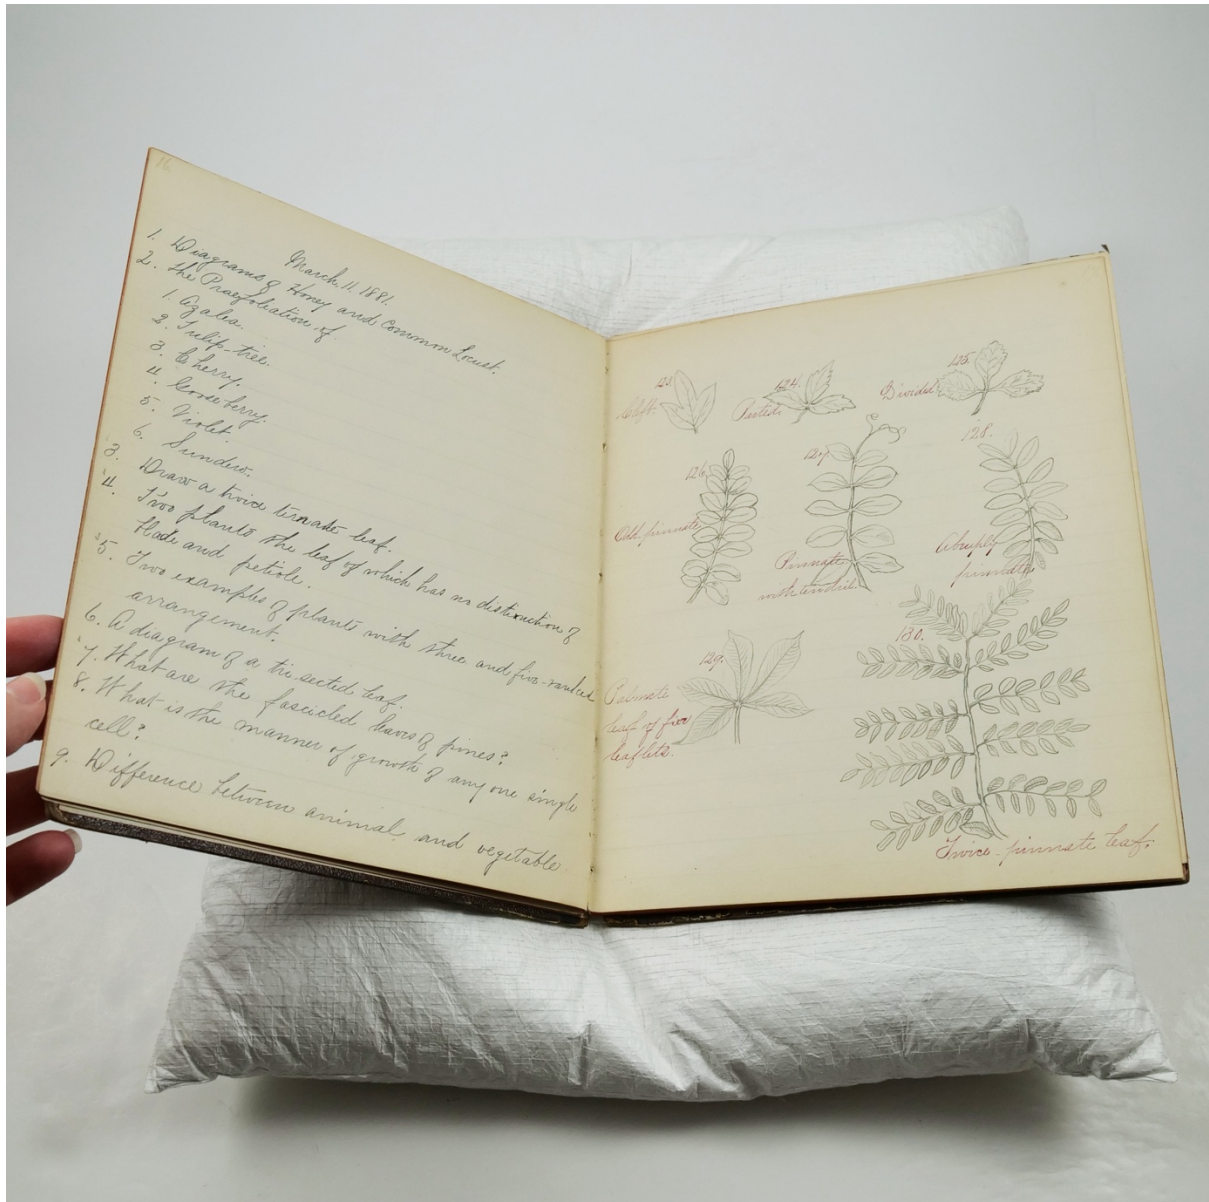 16
March. 11. 1881.
1. Diagrams of Honey and Common Locust.
2. the Praefoliation of.
1. Azalea.
2. Tulip-tree.
3. Cherry.
4. Gooseberry.
5. Violet.
6. Sundew.
3. Draw a twice ternate leaf.
4. Two plants the leaf of which has no distinction of
blade and petiole.
5. Two examples of plants with three and five-ranked
arrangement.
6. A diagram of a tri-sected leaf.
7. What are the fascicled leaves of pines?
8. What is the manner of growth of any one single
cell?
9. Difference between animal and vegetable
123. 124. 125.
Cleft. Parted. Divided.
126. 127. 128.
Odd pinnate
Pinnate
with tendril.
Abruptly
pinnate.
129.
Palmate
leaf of five
leaflets.
130.
Twice-pinnate leaf.